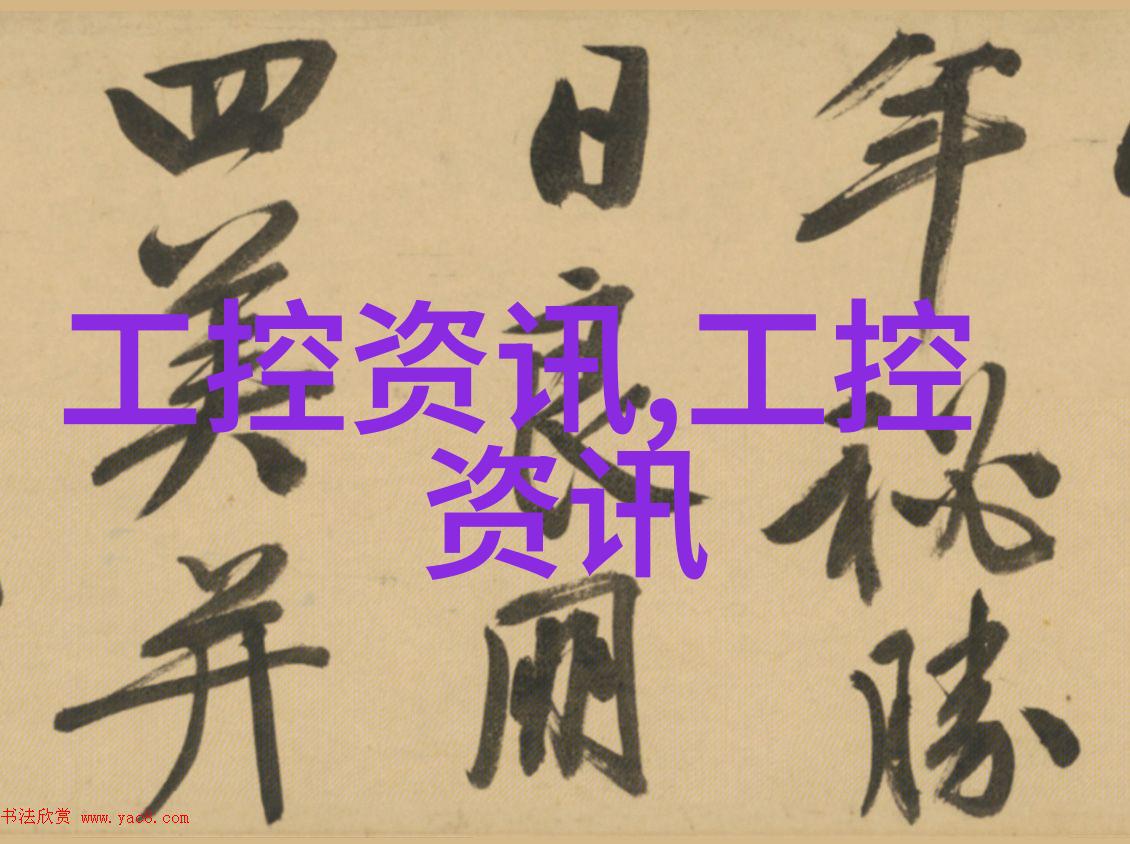 年秘勝
日良朋
四美并
工控资讯,工控
资讯
书法欣赏 www.yac8.com